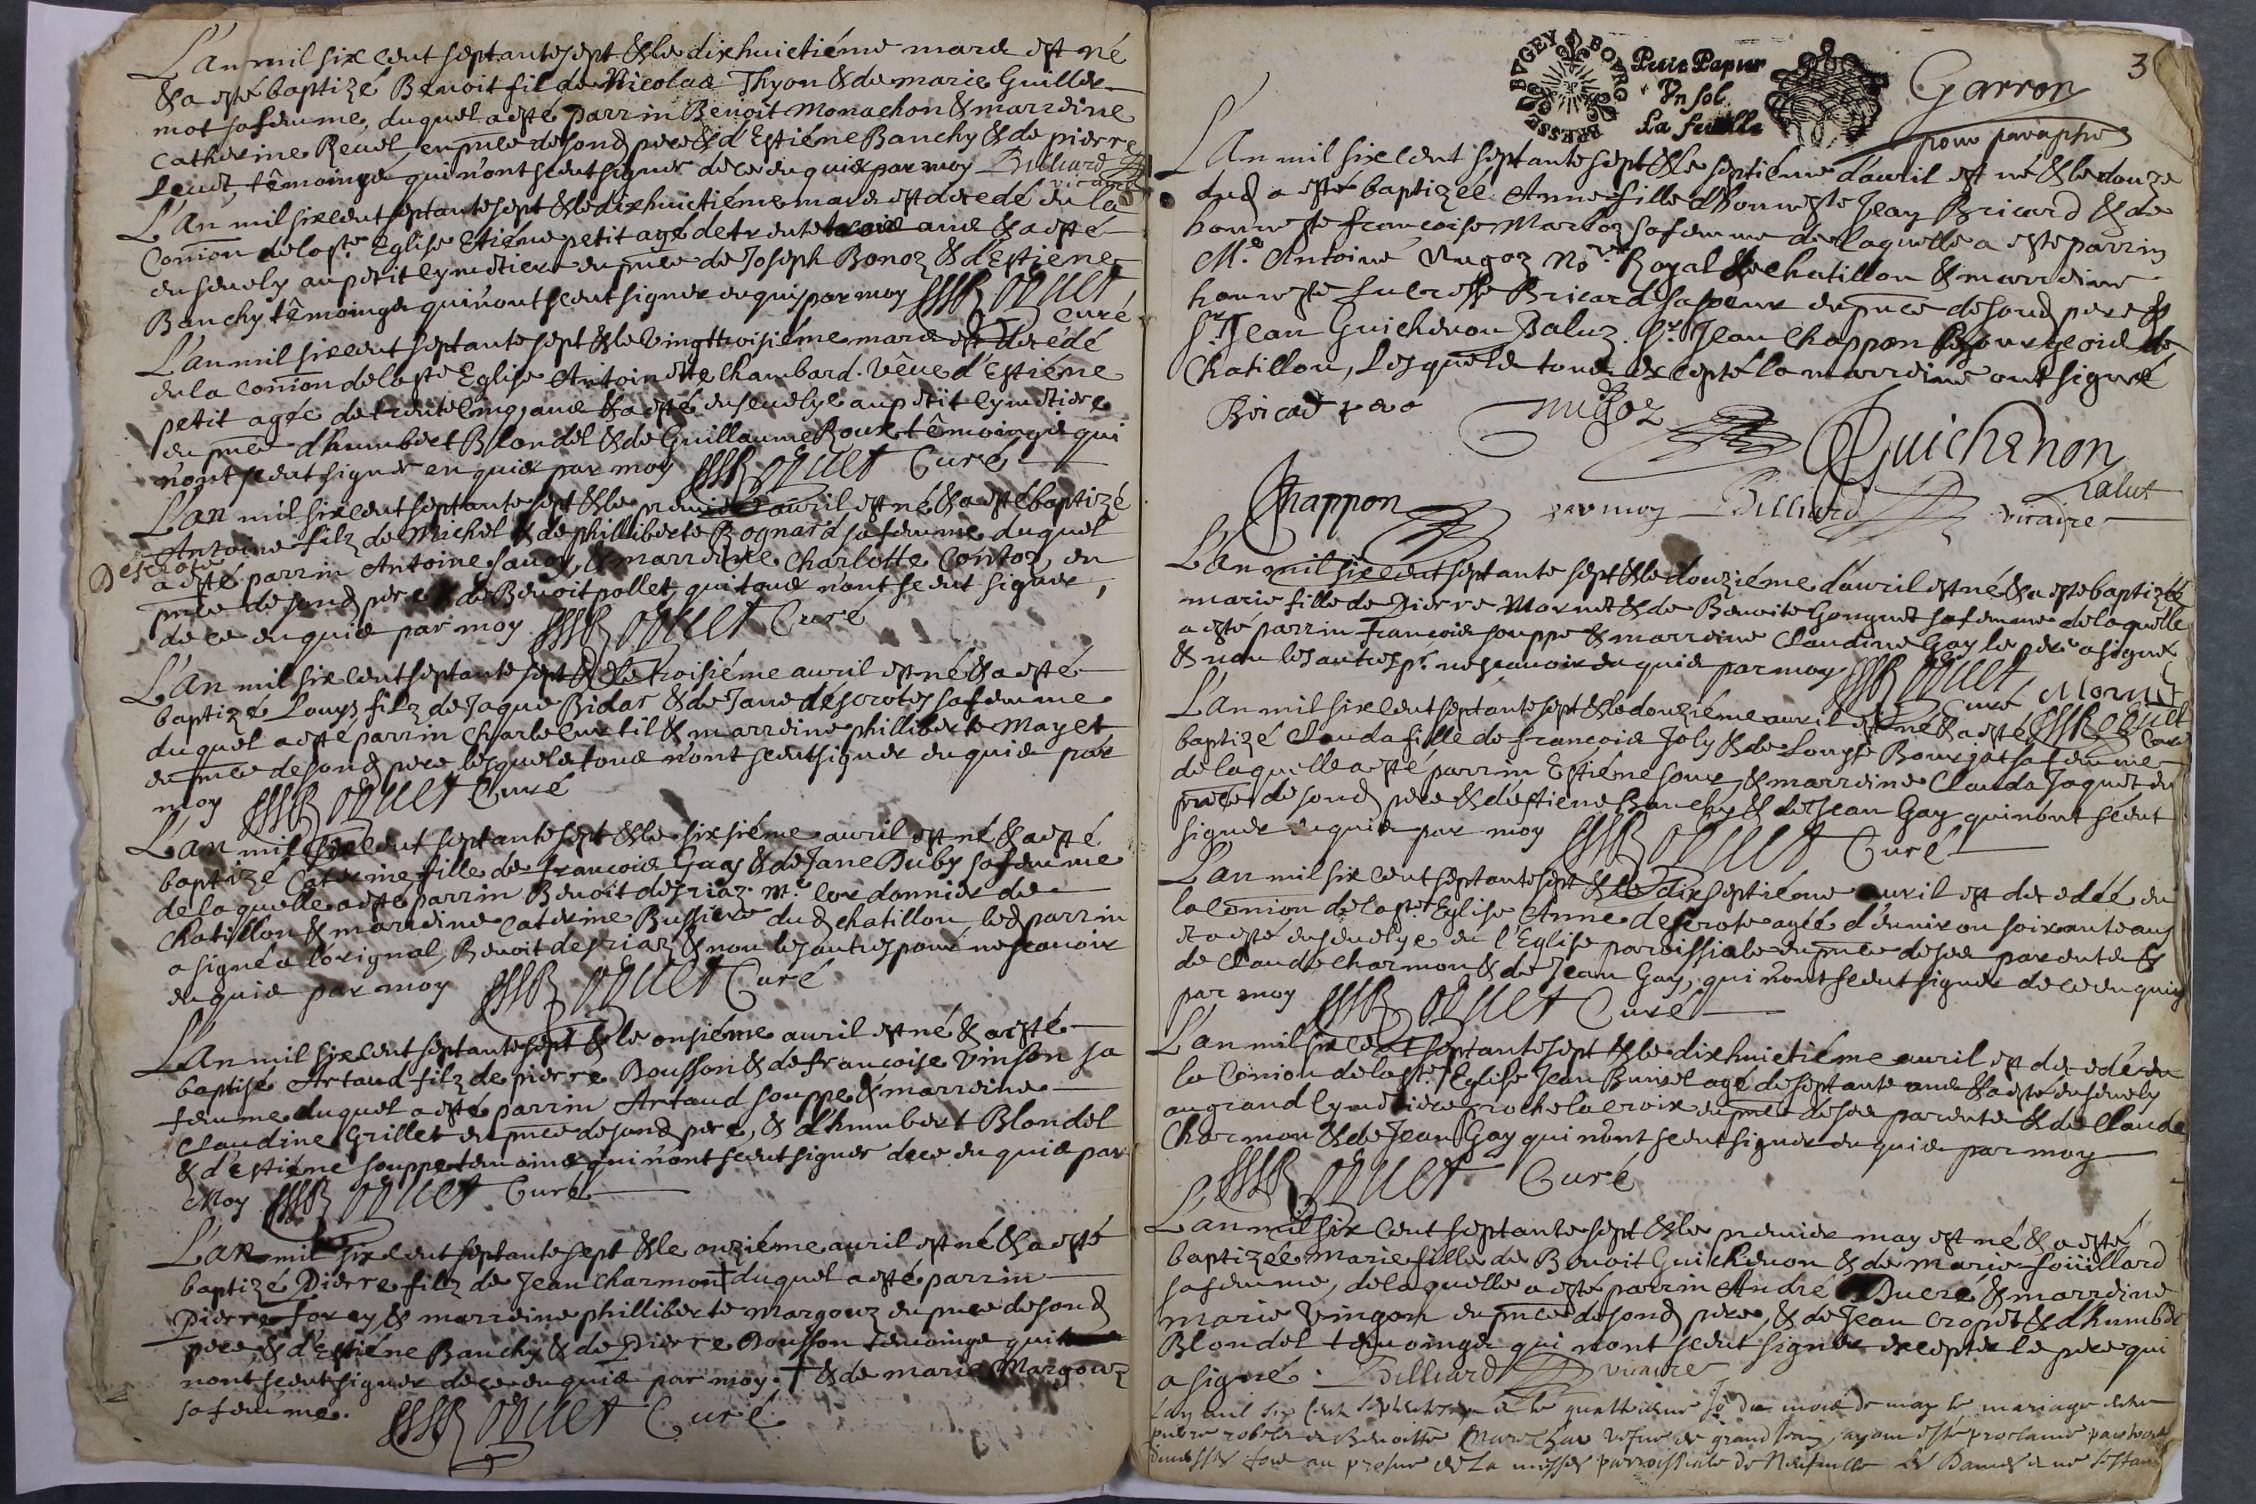 L'An mil six cent septante sept & le dixhuictiéme mars est né
& a esté baptizé Benoit fil de Nicolas Thyon & de marie Guiller
mot sa femme, duquel a esté parrin Benoit Monachon & marreine
Catherine Revel, en pnce de sond pere & d'Estiéne Banchy & de pierre
Levet, têmoings qui n'ont sceut signer de ce enquis par moy Billiard
vicaire
L'An mil six cent septante sept & le dixhuictiéme mars est decedé en la
Comion de la ste Eglise Etiéne petit agé de trente trois ans & a esté
ensevely au petit cymetiere en pnce de Joseph Bonoz & d'Estiéne
Banchy têmoings qui n'ont sceut signer enquis par moy
Curé
L'an mil six cent septante sept & le Vingttroisiéme mars est decédé
en la Comion de la ste Eglise Antoinette Chambard vêue d'Estiéne
petit agée de trente cinq ans & a esté ensevelye au petit Cymetiere
en pnce d'humbert Blondel & de Guillaume Roux têmoings qui
n'ont sceut signer enquis par moy Curé
L'an mil six cent septante sept & le premier avril est né & a esté baptizé
Antoine filz de Michel & de philliberte Bognard sa femme duquel
Descrote
a esté parrin Antoine Savoy, & marreine Charlotte Contoz, en
pnce de sond pere & de Benoit pollet, qui tous n'ont sceut signer,
de ce enquis par moy Curé
L'An mil six cent septante sept & le troisiéme avril est né & a esté
baptizé Louys filz de Jaque Bidar & de Jane descrotes sa femme
duquel a esté parrin Charle Curtil & marreine philliberte Mayet
en pnce de sond pere lesquels tous n'ont sceut signer enquis par
moy Curé
L'an mil six cent septante sept & le sixsiéme avril est né & a esté
baptizé Caterine fille de francois Guay & de Jane Duby sa femme
de laquelle a esté parrin Benoit desriaz me cordonnier de
Chatillon & marreine Caterine Bussiere dud chatillon, led parrin
a signé a l'orignal, Benoit desriaz & non les autres pour ne scavoir
enquis par moy Curé
L'An mil six cent septante sept & le onsiéme avril est né & a esté
baptisé Artaud filz de pierre Bousson & de francoise Vinson sa
femme duquel a esté parrin Artaud souppe & marreine
Claudine Grillet en pnce de sond pere, & d'humbert Blondel
& d'estiéne souppe temoins qui n'ont sceut signer de ce enquis par
Moy Curé
L'an mil six cent septante sept & le onziéme avril est né & a esté
baptizé Pierre filz de Jean Charmon + duquel a esté parrin
Pierre forey & marreine philliberte Margouz en pnce de sond
pere, & d'Estiéne Banchy & de Pierre Bousson temoings qui
n'ont sceut signer de ce enquis par moy. + & de marie Margouz
sa femme. Curé
BRESSE BVGEY BOVRG
Petit Papier
Vn sol
La feuille
Garron
pour paraphe
3
L'An mil six cent septante sept & le septiéme d'avril est né & le douze
dud a esté baptizée Anne fille d'honneste Jean Bricard & de
honneste francoise Marloz sa femme de laquelle a esté parrin
Me Antoine Nugoz Nore Royal de chatillon & marreine
honneste Bricard sa soeur en pnce de sond pere &
sr Jean Guichenon Baluz. sr Jean Chappon Bourgeois de
Chatillon, Lesquels tous excepté la marreine ont signé
Nugoz
Guichenon
Chappon par moy Billiard vicaire
L'An mil six cent septante sept & le douziéme d'avril est né & a esté baptizée
marie fille de Pierre Mornet & de Benoite Gonguet sa femme de laquelle
a esté parrin francois souppe & marreine Claudine Gay le pere a signé
& non les autres pr ne scavoir enquis par moy
Curé Mornet
L'An mil six cent septante sept & le douziéme avril est né & a esté
baptizé Clauda fille de francois Joly & de Louyse Bourgat sa femme
de laquelle a esté parrin Estiéne soux, & marreine Clauda Jaquet en
pnce de sond pere & d'estiene Banchy & de Jean Gay qui n'ont sceut
signer enquis par moy Curé
L'an mil six cent septante sept & le dix septiéme avril est decedée en
la Comion de la ste Eglise Anne descrote agée d'environ soixante ans
et a esté ensevelye en l'Eglise paroissiale en pnce de ses parents &
de Claude Charmon & de Jean Gay, qui n'ont sceut signer de ce enquis
par moy Curé
L'an mil six cent septante sept & le dixhuictiéme avril est decedé en
la Comion de la ste Eglise Jean Buisel agé de septante ans & a esté ensevely
au grand Cymetiere proche la croix en pnce de ses parents & de Claude
Charmon & de Jean Gay qui n'ont sceut signer enquis par moy
Curé
L'an mil six cent septante sept & le premier may est né & a esté
baptizée Marie fille de Benoit Guichenon & de marie foüillard
sa femme, de laquelle a esté parrin André Dueré & marreine
marie Vingon en pnce de sond pere, & de Jean Cropet & d'humbt
Blondel temoings qui n'ont sceut signer excepter le pere qui
a signé. Billiard vicaire
L'an mil six cent septante sept & le quattrieme jo du mois de may le mariage
pierre Benoitte vefue de grand Jean, ayant esté proclamé
au prosne de la messe parroissiale de